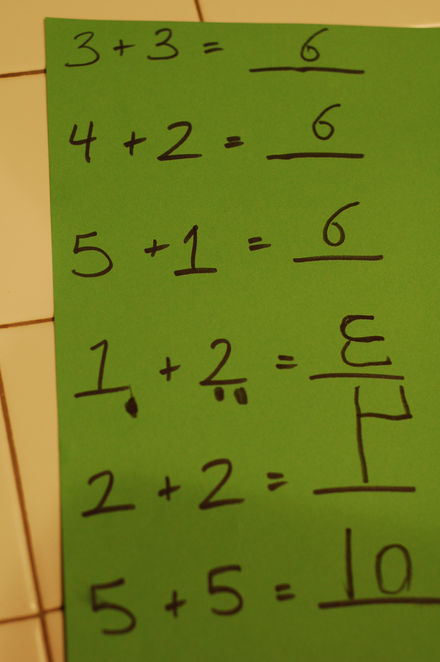 3 + 3 = 6
4 + 2 = 6
5 + 1 = 6
1 + 2 = 3
2 + 2 = 4
5 + 5 = 10